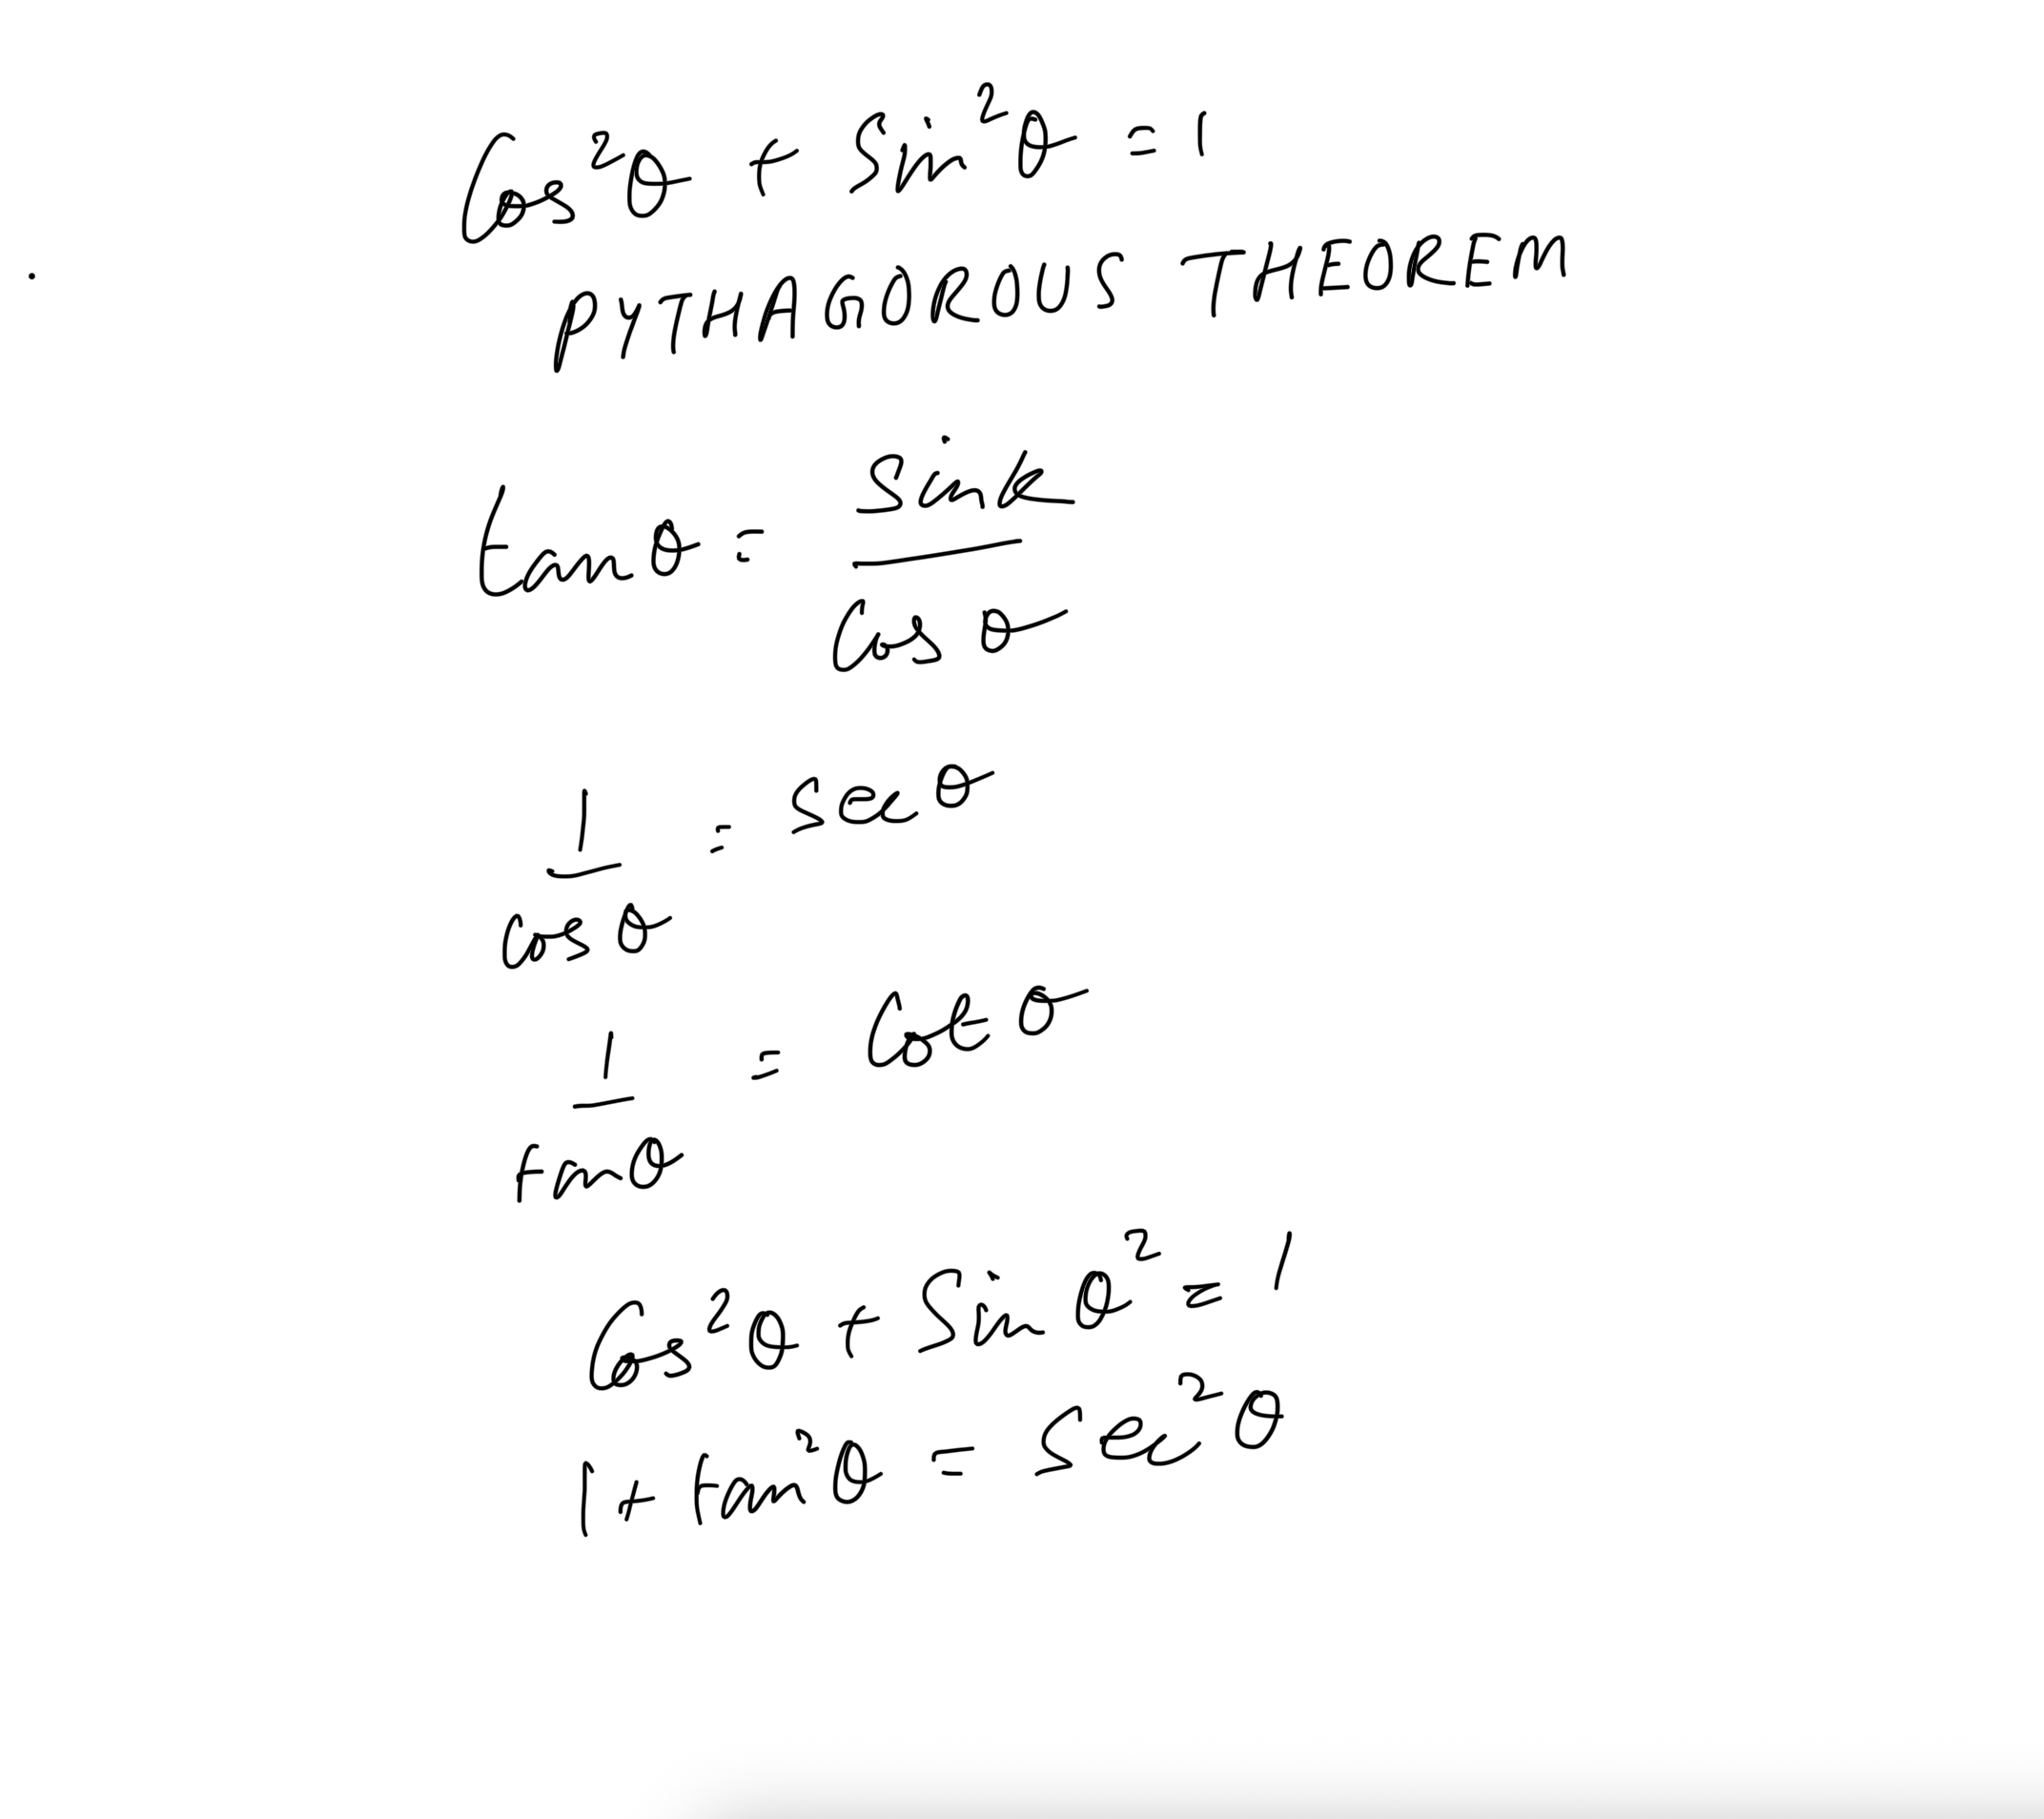 Cos²θ + Sin²θ = 1
PYTHAGOROUS THEOREM
tanθ = Sink / Cosθ
1 / Cosθ = Secθ
1 / tanθ = Cotθ
Cos²θ + Sinθ² = 1
1 + tan²θ = Sec²θ